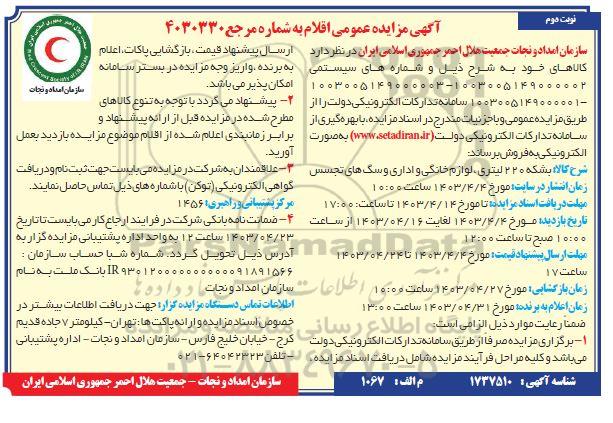 نوبت دوم
آگهی مزایده عمومی اقلام به شماره مرجع ۴۰۳۰۳۳۰
سازمان امداد و نجات جمعیت هلال احمر جمهوری اسلامی ایران در نظر دارد
کالاهای خود به شرح ذیل و شماره های سیستمی
۱۰۰۳۰۰۵۱۴۹۰۰۰۰۰۲-۱۰۰۳۰۰۵۱۴۹۰۰۰۰۰۳
-۱۰۰۳۰۰۵۱۴۹۰۰۰۰۰۱ سامانه تدارکات الکترونیکی دولت را از
طریق مزایده عمومی و با جزئیات مندرج در اسناد مزایده، با بهره گیری از
سامانه تدارکات الکترونیکی دولت (www.setadiran.ir) به صورت
الکترونیکی به فروش برساند:
شرح کالا: بشکه ۲۲۰ لیتری، لوازم خانگی و اداری و سگ های تجسس
زمان انتشار در سایت: مورخ ۱۴۰۳/۴/۴ ساعت ۱۰:۰۰
مهلت دریافت اسناد مزایده: تا مورخ ۱۴۰۳/۴/۱۴ تا ساعت: ۱۷:۰۰
تاریخ بازدید: مورخ ۱۴۰۳/۴/۴ لغایت ۱۴۰۳/۰۴/۱۶ از ساعت
۱۰:۰۰ صبح تا ساعت ۱۲:۰۰
مهلت ارسال پیشنهاد قیمت: مورخ ۱۴۰۳/۴/۴ تا ۱۴۰۳/۰۴/۲۴
ساعت ۱۷
زمان بازگشایی: مورخ ۱۴۰۳/۰۴/۲۷ ساعت ۱۰:۰۰
زمان اعلام به برنده: مورخ ۱۴۰۳/۰۴/۳۱ ساعت ۱۳:۰۰
ضمنا رعایت موارد ذیل الزامی است:
۱- برگزاری مزایده صرفا از طریق سامانه تدارکات الکترونیکی دولت
می باشد و کلیه مراحل فرآیند مزایده شامل دریافت اسناد مزایده،
ارسال پیشنهاد قیمت، بازگشایی پاکات، اعلام
به برنده، واریز وجه مزایده در بستر سامانه
امکان پذیر می باشد.
۲- پیشنهاد می گردد با توجه به تنوع کالاهای
مطرح شده در مزایده قبل از ارائه پیشنهاد و
برابر زمانبندی اعلام شده از اقلام موضوع مزایده بازدید بعمل
آورید.
۳- علاقمندان به شرکت در مزایده می بایست جهت ثبت نام و دریافت
گواهی الکترونیکی (توکن) با شماره های ذیل تماس حاصل نمایند.
مرکز پشتیبانی و راهبری: ۱۴۵۶
۴- ضمانت نامه بانکی شرکت در فرایند ارجاع کار می بایست تا تاریخ
۱۴۰۳/۰۴/۲۳ ساعت ۱۲ به واحد اداره پشتیبانی مزایده گزار به
آدرس ذیل تحویل گردد. شماره شبا حساب سازمان :
بانک ملت به نام
سازمان امداد و نجات
اطلاعات تماس دستگاه مزایده گزار: جهت دریافت اطلاعات بیشتر در
خصوص اسناد مزایده و ارائه پاکت ها: تهران- کیلومتر ۷ جاده قدیم
کرج - خیابان خلیج فارس - سازمان امداد و نجات - اداره پشتیبانی
- تلفن ۶۴۰۴۲۳۲۳-۰۲۱
سازمان امداد و نجات
شناسه آگهی: ۱۷۳۷۵۱۰ م الف: ۱۰۶۷
سازمان امداد و نجات - جمعیت هلال احمر جمهوری اسلامی ایران